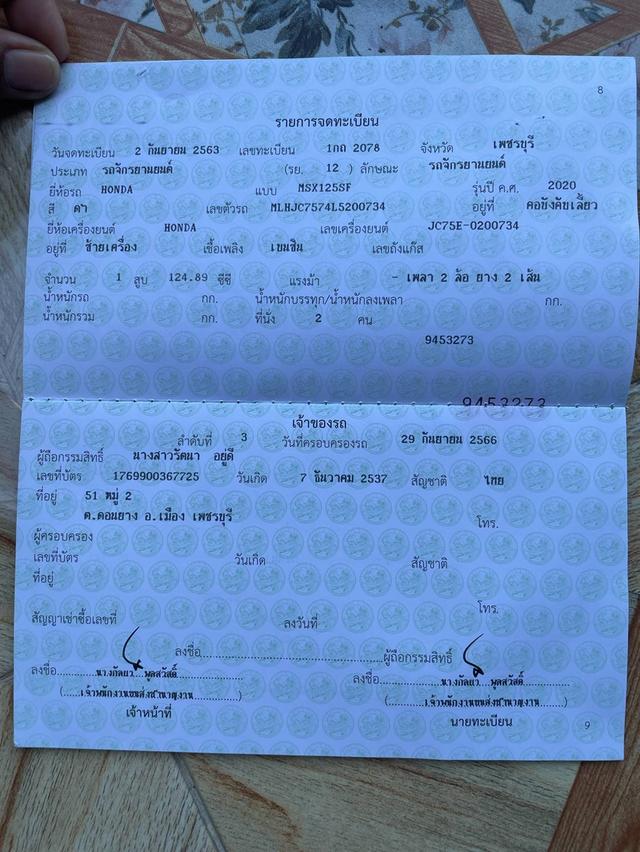 8
รายการจดทะเบียน
วันจดทะเบียน 2 กันยายน 2563 เลขทะเบียน 1กถ 2078 จังหวัด เพชรบุรี
ประเภท รถจักรยานยนต์ (รย. 12 ) ลักษณะ รถจักรยานยนต์
ยี่ห้อรถ HONDA แบบ MSX125SF รุ่นปี ค.ศ. 2020
สี ดำ เลขตัวรถ MLHJC7574L5200734 อยู่ที่ คอบังคับเลี้ยว
ยี่ห้อเครื่องยนต์ HONDA เลขเครื่องยนต์ JC75E-0200734
อยู่ที่ ซ้ายเครื่อง เชื้อเพลิง เบนซิน เลขถังแก๊ส
จำนวน 1 สูบ 124.89 ซีซี แรงม้า - เพลา 2 ล้อ ยาง 2 เส้น
น้ำหนักรถ กก. น้ำหนักบรรทุก/น้ำหนักลงเพลา กก.
น้ำหนักรวม กก. ที่นั่ง 2 คน
9453273
9453273
เจ้าของรถ
ลำดับที่ 3 วันที่ครอบครองรถ 29 กันยายน 2566
ผู้ถือกรรมสิทธิ์ นางสาวรัตนา อยู่ดี
เลขที่บัตร 1769900367725 วันเกิด 7 ธันวาคม 2537 สัญชาติ ไทย
ที่อยู่ 51 หมู่ 2
ต.ดอนยาง อ.เมือง เพชรบุรี
โทร.
ผู้ครอบครอง
เลขที่บัตร วันเกิด สัญชาติ
ที่อยู่
โทร.
สัญญาเช่าซื้อเลขที่ ลงวันที่
ลงชื่อ ผู้ถือกรรมสิทธิ์
ลงชื่อ พูลสวัสดิ์ ลงชื่อ พูลสวัสดิ์
(เจ้าพนักงานขนส่งชำนาญงาน) (เจ้าพนักงานขนส่งชำนาญงาน)
เจ้าหน้าที่ นายทะเบียน
9